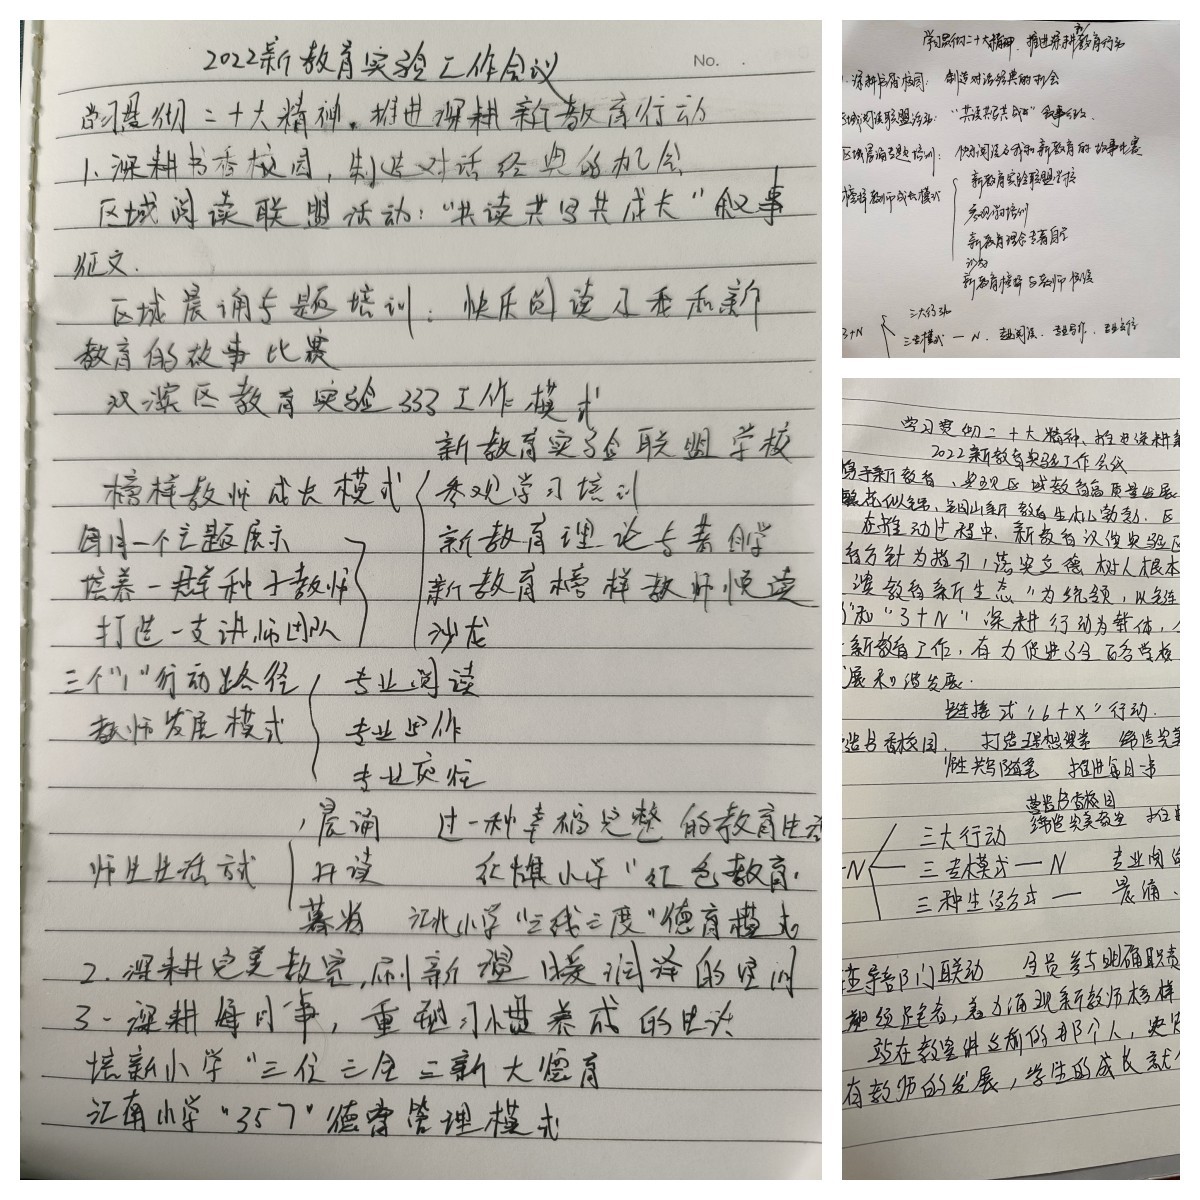 2022新教育实验工作会议
No. .
学习贯彻二十大精神。推进深耕新教育行动
1.深耕书香校园，制造对话经典的机会
区域阅读联盟活动："共读共写共成长"叙事
征文.
区域晨诵专题培训：快乐阅读及我和新
教育的故事比赛
双滦区教育实验333工作模式
新教育实验联盟学校
榜样教师成长模式 参观学习培训
每月一个主题展示 新教育理论专著自学
培养一群种子教师 新教育榜样教师悦读
打造一支讲师团队 沙龙
三个"1"行动路径 专业阅读
教师发展模式 专业写作
专业交往
晨诵 过一种幸福完整的教育生活
师生生活方式 午读 红旗小学"红色教育.
暮省 江北小学"三线三度"德育模式
2.深耕完美教室,刷新温暖润泽的空间
3.深耕每月一事，重塑习惯养成的生活
培新小学"三位三全三新大德育
江南小学"357"德育管理模式
学习贯彻二十大精神.推进深耕新教育行动
1.深耕书香校园：制造对话经典的机会
区域阅读联盟活动："共读共写共成长"叙事征文.
区域晨诵专题培训：快乐阅读及我和新教育的故事比赛
榜样教师成长模式 新教育实验联盟学校
参观学习培训
新教育理论专著自学
沙龙
新教育榜样教师悦读
三大行动
3+N 三专模式—N.专业阅读.专业写作.专业交往
学习贯彻二十大精神、推进深耕新
2022新教育实验工作会议
携手新教育、实现区域教育高质量发展
在推动过程中.新教育汉滨实验区
育方针为指引，落实立德树人根本
"为统领，以链
"和"3+N"深耕行动为载体，
新教育工作，有力促进了全区各学校
展和谐发展.
链接式"6+X"行动.
造书香校园. 打造理想课堂 缔造完美
师生共写随笔 推进每月一事
营造书香校园
三大行动 缔造完美教室 推进
N 三专模式—N 专业阅读
三种生活方式— 晨诵、
部门联动 全员参与明确职责
塑领跑者，着力涌现新教师榜样
站在教室讲台前的那个人，决定
有教师的发展，学生的成长就